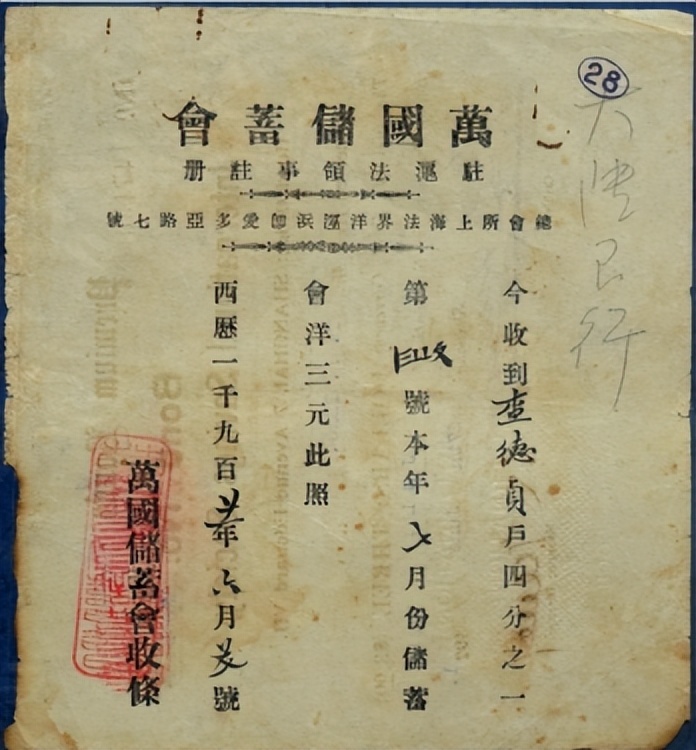 28
萬國儲蓄會
駐滬法領事註册
總會所上海法界洋涇浜卽愛多亞路七號
大陸銀行
今收到查德貞戶四分之一
第 號本年七月份儲蓄
會洋三元此照
西歷一千九百 年六月 號
萬國儲蓄會收條